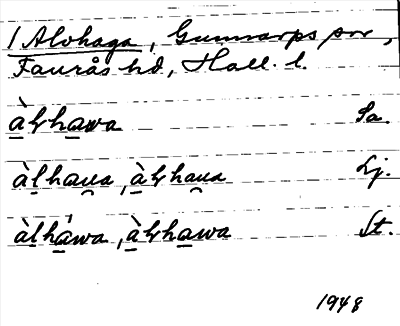 1 Alohaga, Gunnarps sn,
Faurås hd, Hall. l.
àłhawa Sa.
àlhau̯a, àłhau̯a Lj.
àlháwa, àłhawa St.
1948